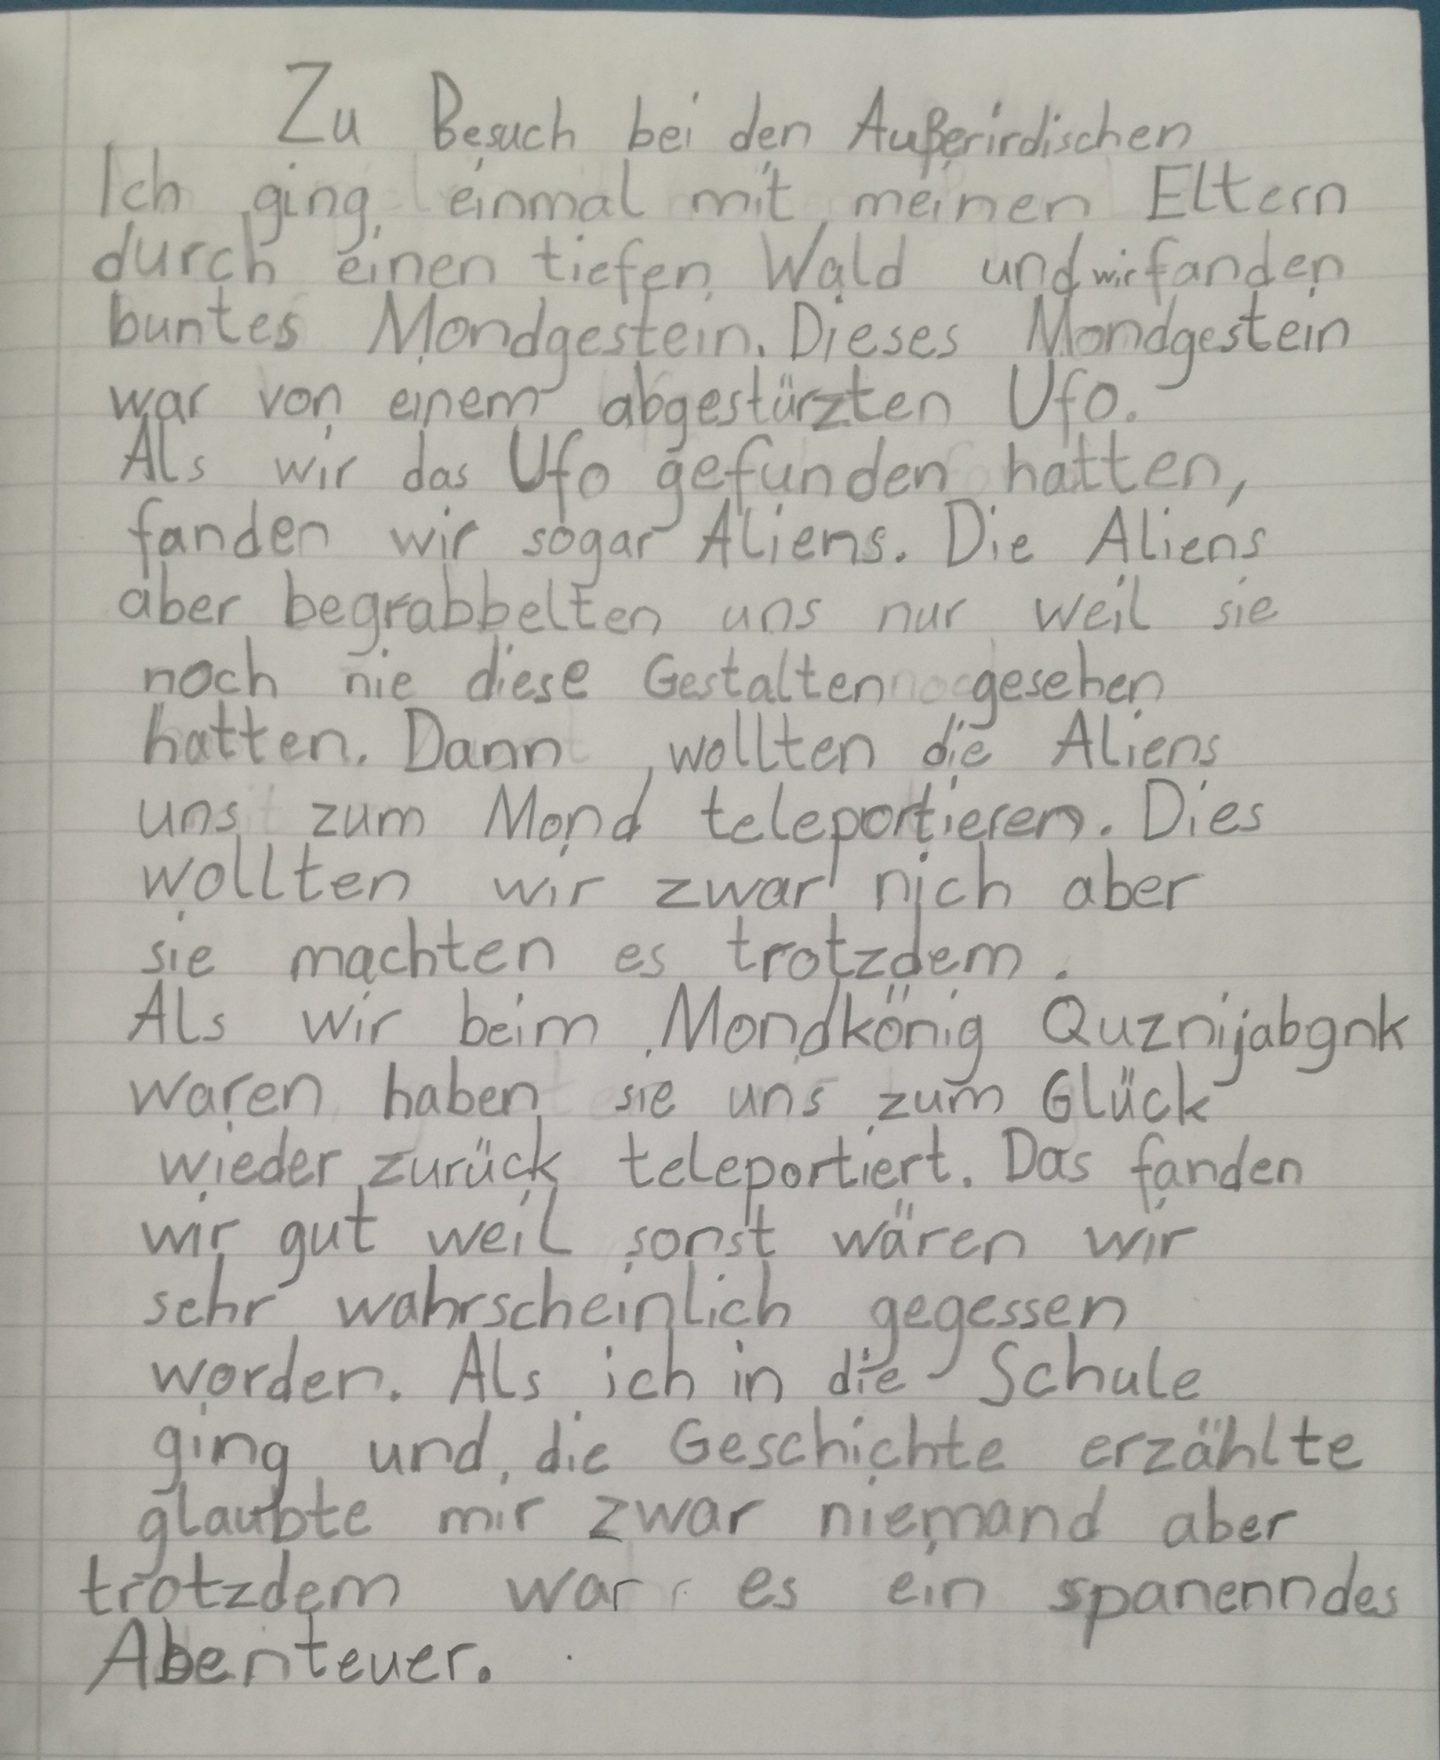 Zu Besuch bei den Außerirdischen
Ich ging einmal mit meinen Eltern
durch einen tiefen Wald und wir fanden
buntes Mondgestein. Dieses Mondgestein
war von einem abgestürzten Ufo.
Als wir das Ufo gefunden hatten,
fanden wir sogar Aliens. Die Aliens
aber begrabbelten uns nur weil sie
noch nie diese Gestalten gesehen
hatten. Dann wollten die Aliens
uns zum Mond teleportieren. Dies
wollten wir zwar nich aber
sie machten es trotzdem.
Als wir beim Mondkönig Quznijabgnk
waren haben sie uns zum Glück
wieder zurück teleportiert. Das fanden
wir gut weil sonst wären wir
sehr wahrscheinlich gegessen
worden. Als ich in die Schule
ging und die Geschichte erzählte
glaubte mir zwar niemand aber
trotzdem war es ein spanenndes
Abenteuer.